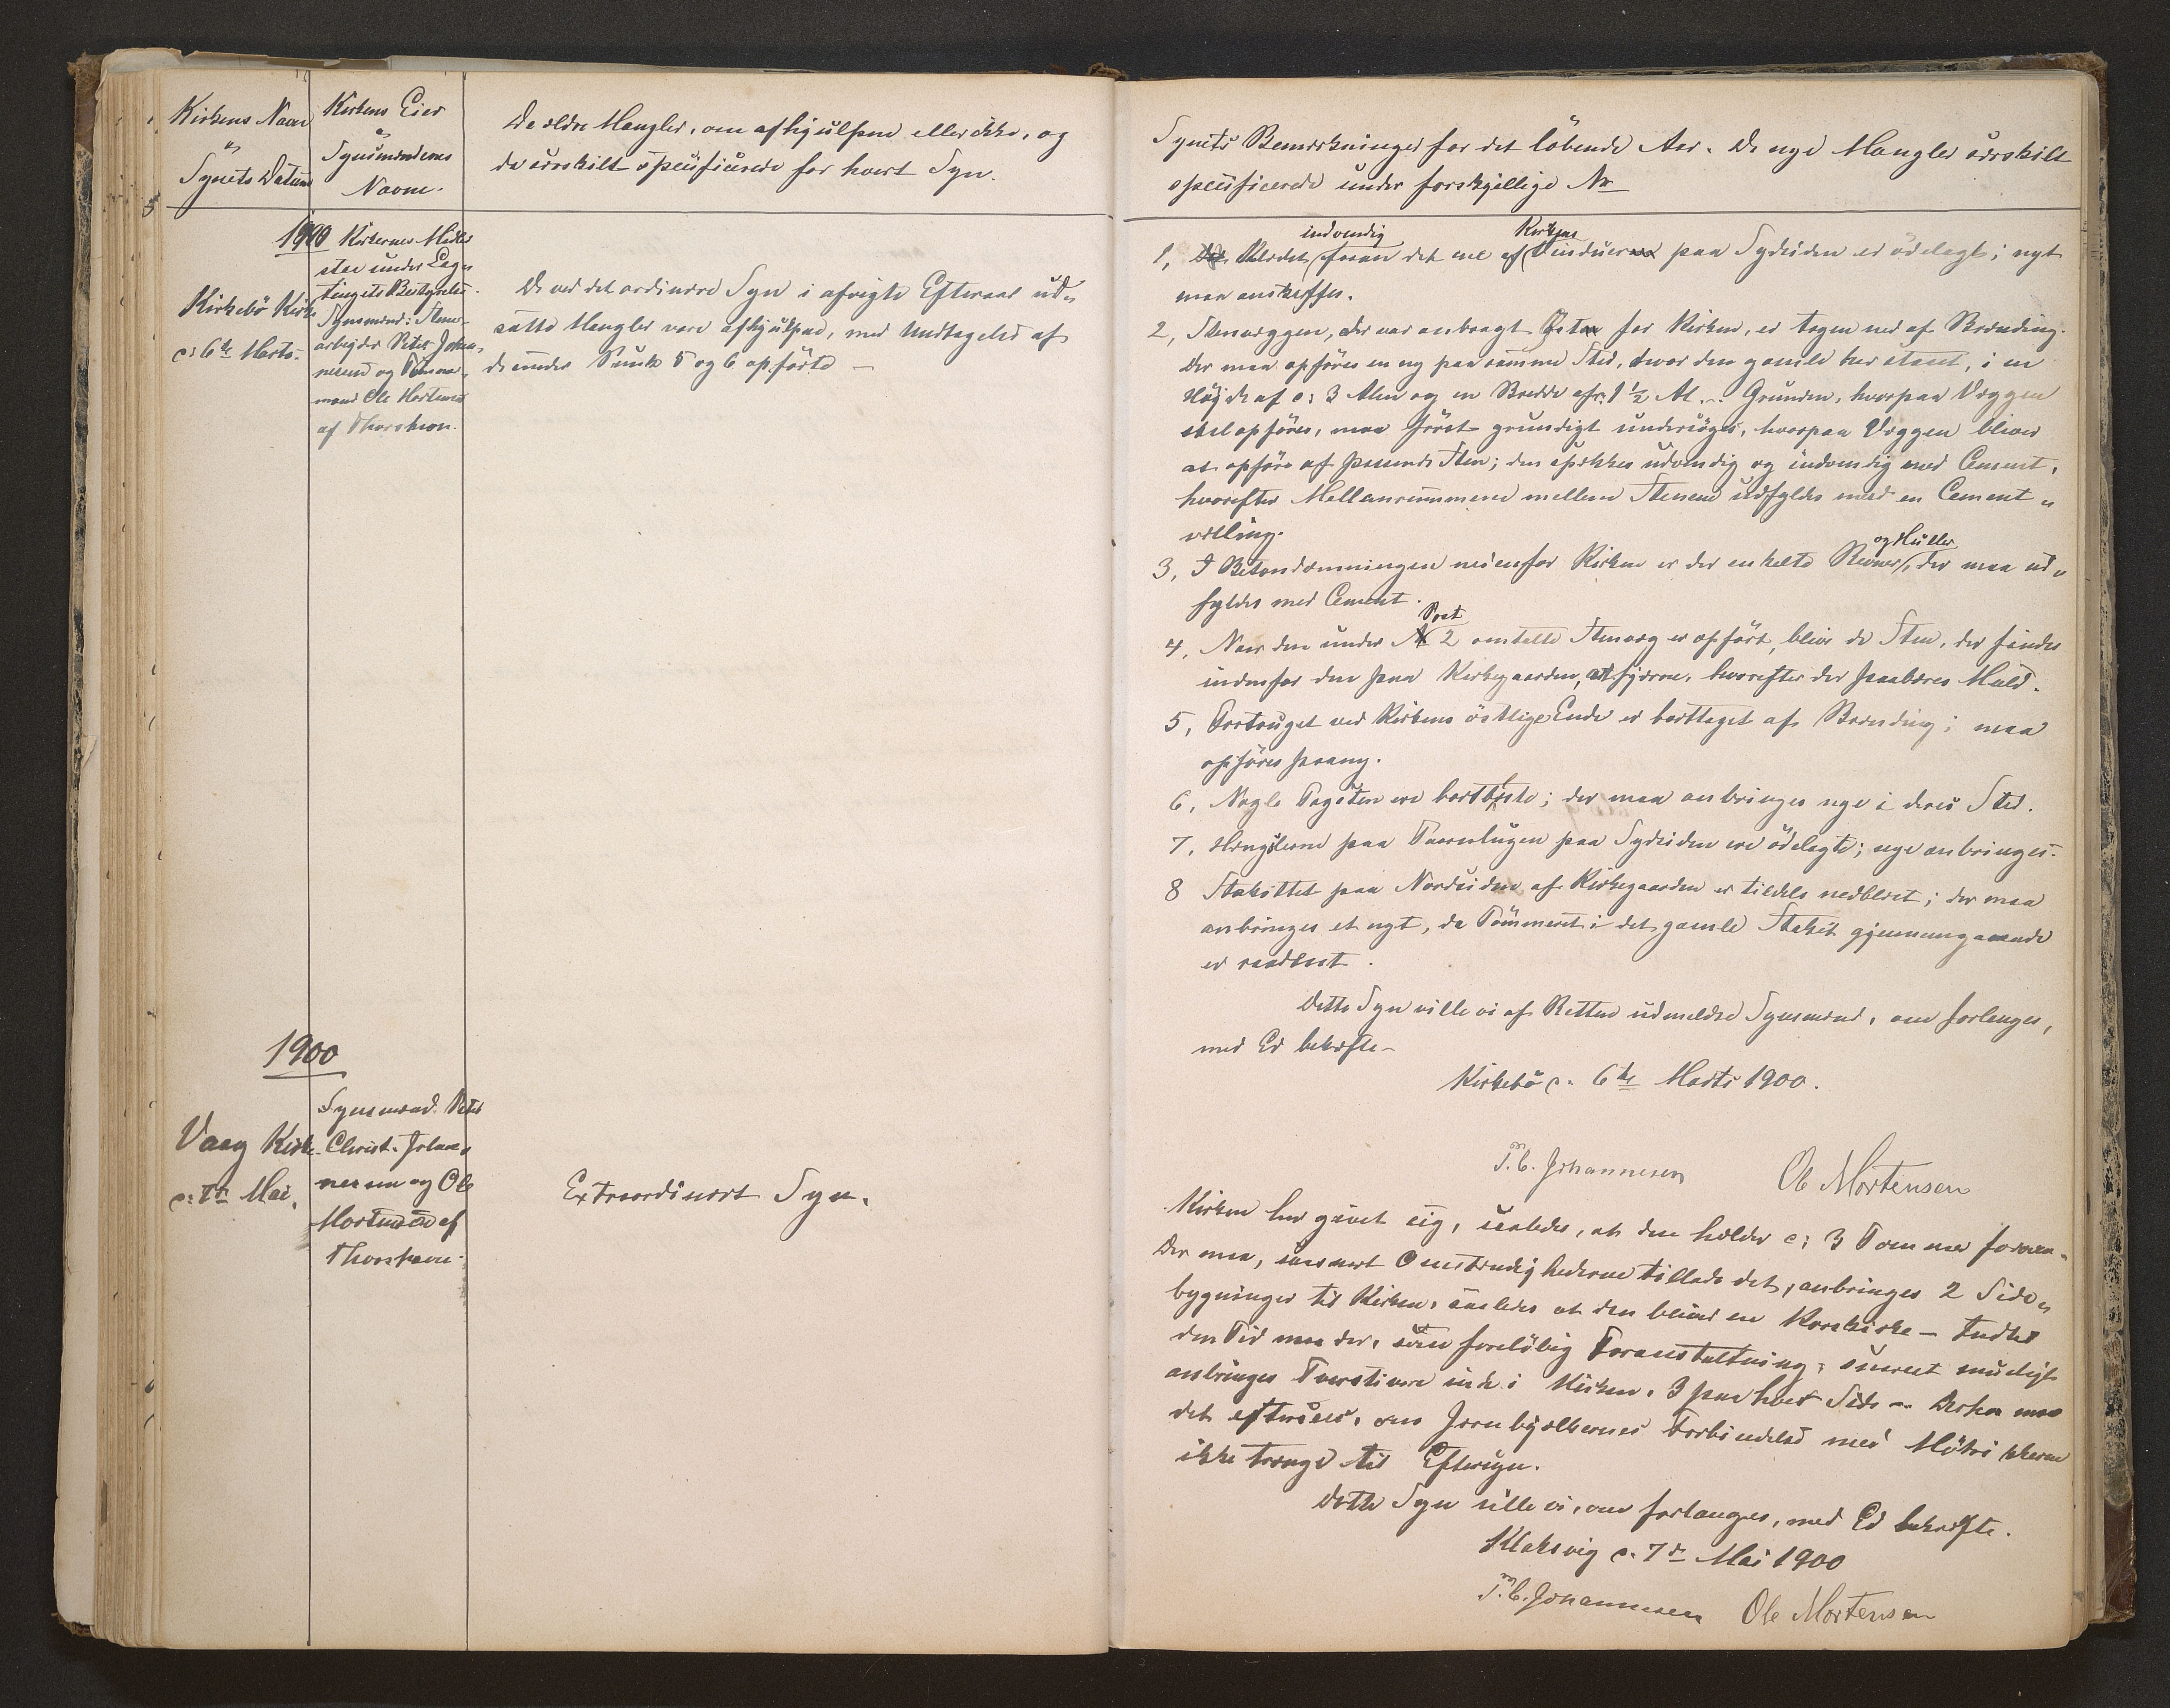 Kirkens Navn
og
Synets Datum
Kirkens Eier
og
Synsmændenes
Navne.
De ældre Mangler, om afhjulpne eller ikke, og
de særskilt specificerede for hvert Syn.
1900
Kirkebö Kirke
d: 6te Marts.
Kirkernes Midler
staa under Lag-
tingets Bestyrelse.
Synsmænd: Sten-
arbejder Peter Johan-
nesen og Tömmer-
mand Ole Mortensen
af Thorshavn.
De ved det ordinære Syn i afvigte Efteraar ud-
satte Mangler vare afhjulpne, med Undtagelse af
de under Punkt 5 og 6 opförte –
1900
Vaag Kirke
d: 7de Mai.
Synsmænd: Peter
Christ. Johan-
nesen og Ole
Mortensen af
Thorshavn.
Extraordinært Syn.
Synets Bemærkninger for det löbende Aar. De nye Mangler særskilt
specificerede under forskjellige No
indvendig Kirkens
1, Klædet foran det ene af Vinduer paa Sydsiden er ödelagt; nyt
maa anskaffes.
2, Stenvæggen, der var anbragt Östen for Kirken, er tagen ned af Brænding.
Der maa opföres en ny paa samme Sted, hvor den gamle har staaet, i en
Höjde af c: 3 Alen og en Bredde af c: 1 1/2 Al.. Grunden, hvorpaa Væggen
skal opföres, maa först grundigt undersöges, hvorpaa Væggen bliver
at opföre af passende Sten; den spækkes udvendig og indvendig med Cement,
hvorefter Mellemrummene mellem Stenene udfyldes med en Cement-
vælling.
3, I Betondæmningen nedenfor Kirken er der enkelte Revner og Huller, der maa ud-
fyldes med Cement.
Post
4, Naar den under 2 omtalte Stenvæg er opfört, blive de Sten, der findes
indenfor den paa Kirkegaarden, at fjærne, hvorefter der paabæres Muld.
5, Fortouget ved Kirkens östlige Ende er borttaget af Brænding; maa
opföres paany.
6, Nogle Tagsten ere bortblæste; der maa anbringes nye i deres Sted.
7, Hængslerne paa Taarnlugen paa Sydsiden ere ödelagte; nye anbringes.
8 Stakittet paa Nordsiden af Kirkegaarden er tildels nedblæst; der maa
anbringes et nyt, da Tömmeret i det gamle Stakit gjennemgaaende
er raaddent.
Dette Syn ville vi af Retten udmeldte Synsmænd, om forlanges,
med Ed bekræfte –
Kirkebö d. 6te Marts 1900.
P. C. Johannesen Ole Mortensen
Kirken har givet sig, saaledes, at den helder c: 3 Tommer foroven.
Der maa, saasnart Omstændighederne tillade det, anbringes 2 Side-
bygninger til Kirken, saaledes at den bliver en Korskirke – Indtil
den Tid maa der, som forelöbig Foranstaltning, snarest muligt
anbringes Tværstivere inde i Kirken, 3 paa hver Side – Desuden maa
det efterses, om Jernbjælkernes Forbindelse med Mötrikkerne
ikke trænge til Eftersyn.
Dette Syn ville vi, om forlanges, med Ed bekræfte.
Klaksvig d. 7de Mai 1900
P. C. Johannesen Ole Mortensen